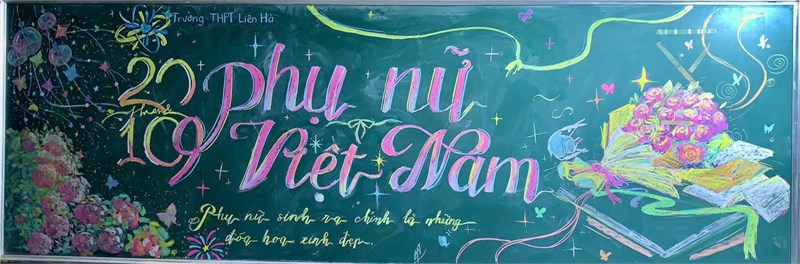 Trường THPT Liên Hà
20 Phụ nữ
tháng
10 Việt Nam
Phụ nữ sinh ra chính là những
đóa hoa xinh đẹp.